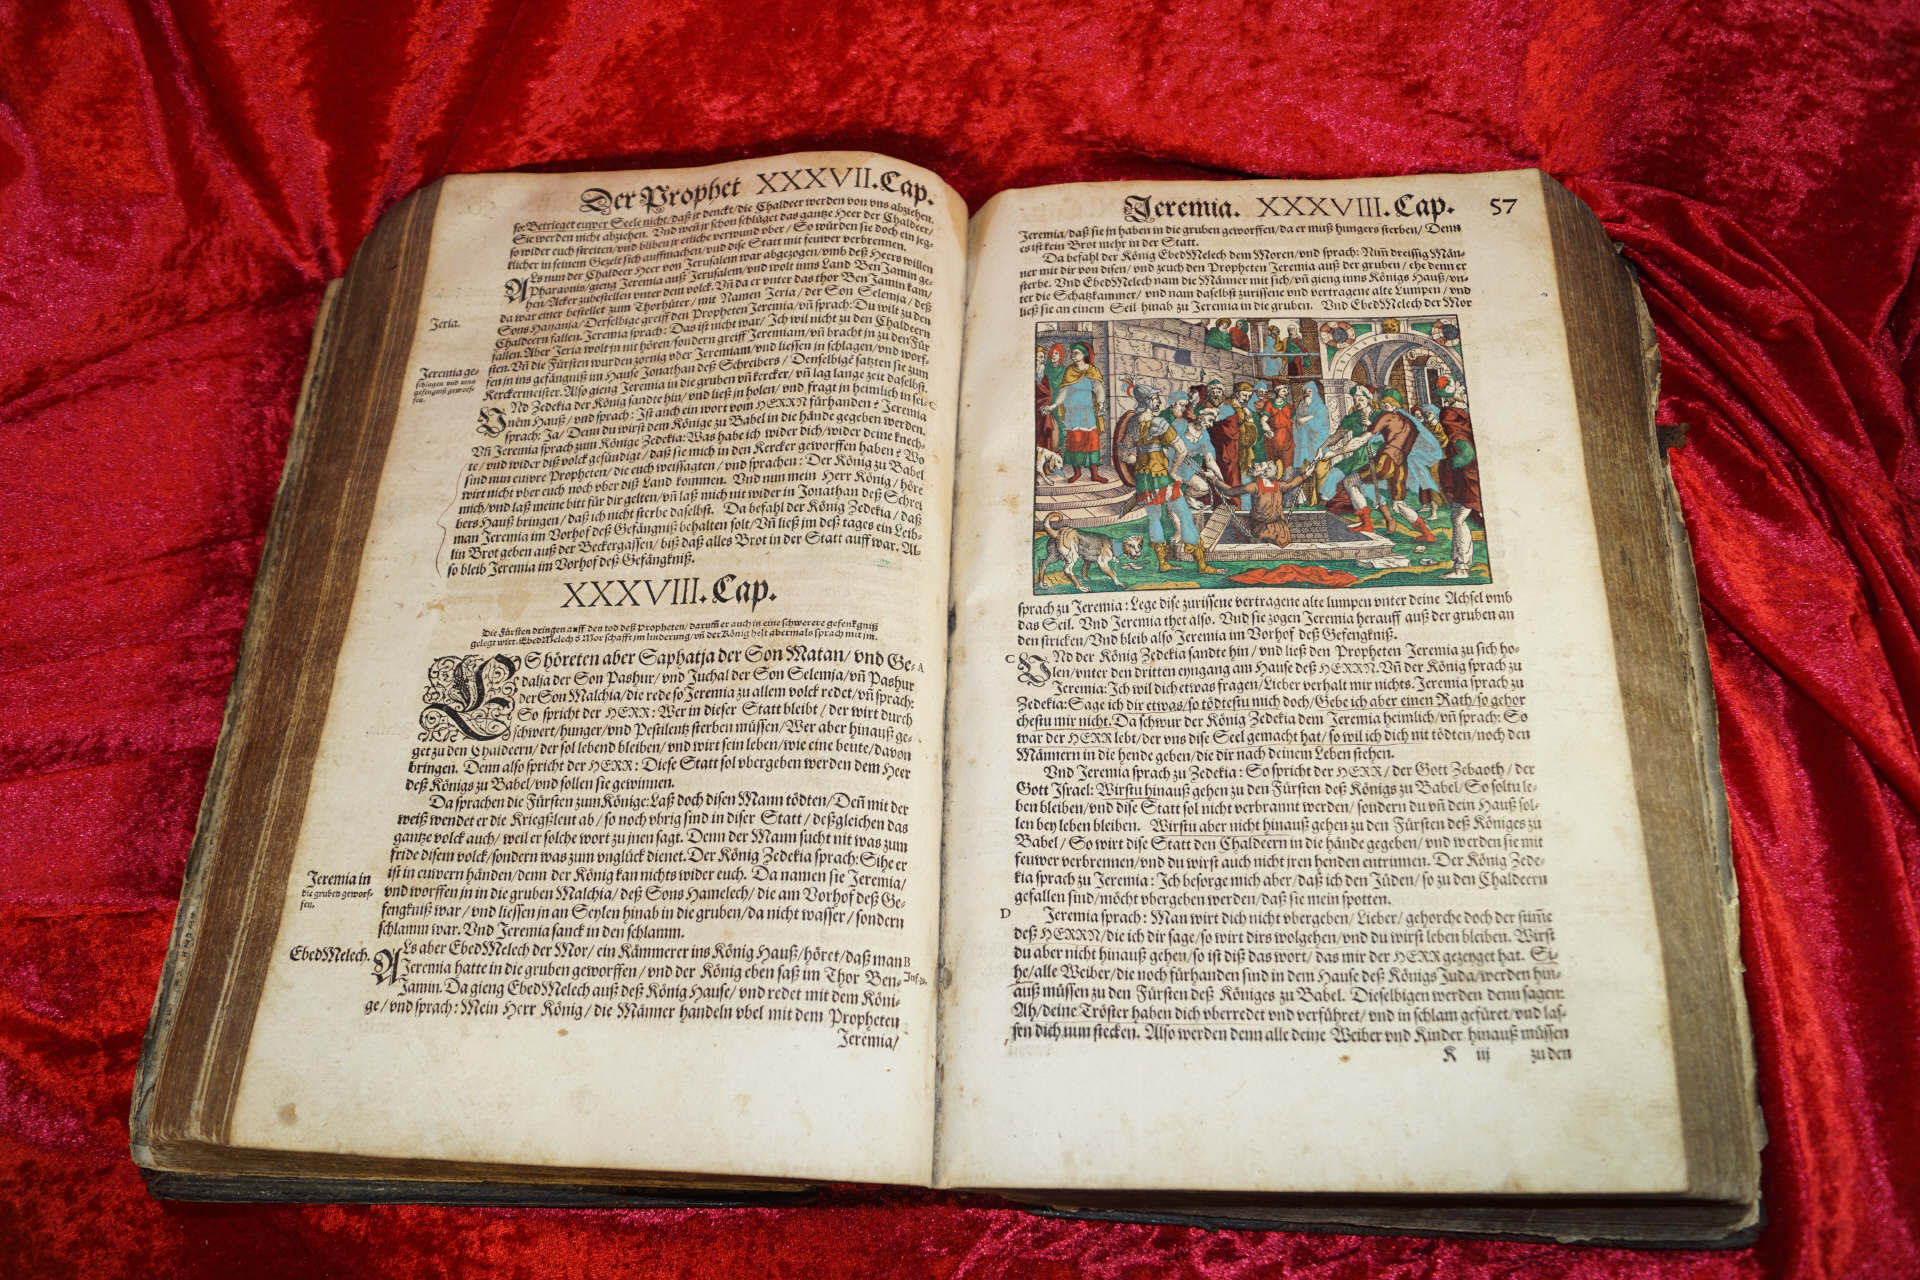 Der Prophet XXXVII. Cap.
sx Betrieget euwer Seele nicht/daß jr denckt/die Chaldeer werden von vns abziehen.
Sie werden nicht abziehen. Vnd weñ jr schon schlüget das gantze Heer der Chaldeer/
so wider euch streiten/vnd bliben jr etliche verwund vber/ So würden sie doch ein jeg-
klicher in seinem Gezelt sich auffmachen/vnd dise Statt mit feuwer verbrennen.
ALs nun der Chaldeer Heer von Jerusalem war abgezogen/vmb deß Heers willen
Pharaonis/gieng Jeremia auß Jerusalem/vnd wolt inns Land BenJamin ge-
hen/Acker zubestellen vnter dem volck. Vñ da er vnter das thor BenJamin kam/
da war einer bestellet zum Thorhüter/mit Namen Jeria/der Son Selemja/deß
Jeria.
Sons Hanania/Derselbige greiff den Propheten Jeremia/vñ sprach: Du wilt zu den
Chaldeern fallen. Jeremia sprach: Das ist nicht war/Ich wil nicht zu den Chaldeern
fallen. Aber Jeria wolt jn nit hören/sondern greiff Jeremiam/vñ bracht jn zu den Für
sten. Vñ die Fürsten wurden zornig vber Jeremiam/vnd liessen jn schlagen/vnd worf-
Jeremia ge-
schlagen vnd inns
gefengniß geworf-
fen.
fen jn ins gefängniß im Hause Jonathan deß Schreibers/ Denselbigẽ satzten sie zum
Kerckermeister. Also gieng Jeremia in die gruben vñ kercker/vñ lag lange zeit daselbst.
VNd Zedekia der König sandte hin/vnd ließ jn holen/vnd fragt jn heimlich in sei-
nẽm Hauß/vnd sprach: Ist auch ein wort vom HERRN fürhanden? Jeremia
sprach: Ja/Denn du wirst dem Könige zu Babel in die hände gegeben werden.
Vñ Jeremia sprach zum Könige Zedekia: Was habe ich wider dich/wider deine knech-
te/vnd wider diß volck gesündigt/daß sie mich in den Kercker geworffen haben? Wo
sind nun euwre Propheten/die euch weissagten/vnd sprachen: Der König zu Babel
wirt nicht vber euch noch vber diß Land kommen. Vnd nun mein Herr König/höre
mich/vnd laß meine bitt für dir gelten/vñ laß mich nit wider in Jonathan deß Schrei
bers Hauß bringen/daß ich nicht sterbe daselbst. Da befahl der König Zedekia/daß
man Jeremia im Vorhof deß Gefängniß behalten solt/Vñ ließ jm deß tages ein Leib-
lin Brot geben auß der Beckergassen/biß daß alles Brot in der Statt auff war. Al-
so bleib Jeremia im Vorhof deß Gefängkniß.
XXXVIII. Cap.
Die Fürsten dringen auff den tod deß Propheten/darumb er auch in eine schwerere gefenkgniß
gelegt wirt. EbedMelech ð Mor schafft jm linderung/vñ der König helt abermals sprach mit jm.
ES höreten aber Saphatja der Son Matan/vnd Ge- A
dalja der Son Pashur/vnd Juchal der Son Selemja/vñ Pashur
der Son Malchia/die rede so Jeremia zu allem volck redet/vñ sprach:
So spricht der HERR: Wer in dieser Statt bleibt/der wirt durch
schwert/hunger/vnd Pestilentz sterben müssen/Wer aber hinauß ge-
get zu den Chaldeern/der sol lebend bleiben/vnd wirt sein leben/wie eine beute/davon
bringen. Denn also spricht der HERR: Diese Statt sol vbergeben werden dem Heer
deß Königs zu Babel/vnd sollen sie gewinnen.
Da sprachen die Fürsten zum Könige: Laß doch disen Mann tödten/Deñ mit der
weiß wendet er die Kriegßleut ab/so noch vbrig sind in diser Statt/deßgleichen das
gantze volck auch/weil er solche wort zu jnen sagt. Denn der Mann sucht nit was zum
fride disem volck/sondern was zum vnglück dienet. Der König Zedekia sprach: Sihe er
ist in euwern händen/denn der König kan nichts wider euch. Da namen sie Jeremia/
Jeremia in
die gruben geworf-
fen.
vnd worffen jn in die gruben Malchia/deß Sons Hamelech/die am Vorhof deß Ge-
fengkniß war/vnd liessen jn an Seylen hinab in die gruben/da nicht wasser/sondern
schlamm war. Vnd Jeremia sanck in den schlamm.
EbedMelech.
ALs aber EbedMelech der Mor/ein Kämmerer ins König Hauß/höret/daß man B
Jeremia hatte in die gruben geworffen/vnd der König eben saß im Thor Ben-
Jamin. Da gieng EbedMelech auß deß König Hause/vnd redet mit dem Köni-
ge/vnd sprach: Mein Herr König/die Männer handeln vbel mit dem Propheten
Jeremia/
Jeremia. XXXVIII. Cap. 57
Jeremia/daß sie jn haben in die gruben geworffen/da er muß hungers sterben/Denn
es ist kein Brot mehr in der Statt.
Da befahl der König EbedMelech dem Moren/vnd sprach: Nim̃ dreissig Män-
ner mit dir von disen/vnd zeuch den Propheten Jeremia auß der gruben/ehe denn er
sterbe. Vnd EbedMelech nam die Männer mit sich/vñ gieng inns Königs Hauß/vn-
ter die Schatzkammer/vnd nam daselbst zurissene vnd vertragene alte Lumpen/vnd
ließ sie an einem Seil hinab zu Jeremia in die gruben. Vnd EbedMelech der Mor
sprach zu Jeremia: Lege dise zurissene vertragene alte lumpen vnter deine Achsel vmb
das Seil. Vnd Jeremia thet also. Vnd sie zogen Jeremia herauff auß der gruben an
den stricken/Vnd bleib also Jeremia im Vorhof deß Gefengkniß.
C VNd der König Zedekia sandte hin/vnd ließ den Propheten Jeremia zu sich ho-
len/vnter den dritten eyngang am Hause deß HERRN. Vñ der König sprach zu
Jeremia: Ich wil dich etwas fragen/Lieber verhalt mir nichts. Jeremia sprach zu
Zedekia: Sage ich dir etwas/so tödtestu mich doch/Gebe ich aber einen Rath/so gehor
chestu mir nicht. Da schwur der König Zedekia dem Jeremia heimlich/vñ sprach: So
war der HERR lebt/der vns dise Seel gemacht hat/so wil ich dich nit tödten/noch den
Männern in die hende geben/die dir nach deinem Leben stehen.
Vnd Jeremia sprach zu Zedekia: So spricht der HERR/der Gott Zebaoth/der
Gott Israel: Wirstu hinauß gehen zu den Fürsten deß Königs zu Babel/So soltu le-
ben bleiben/vnd dise Statt sol nicht verbrannt werden/sondern du vñ dein Hauß sol-
len bey leben bleiben. Wirstu aber nicht hinauß gehen zu den Fürsten deß Königes zu
Babel/So wirt dise Statt den Chaldeern in die hände gegeben/vnd werden sie mit
feuwer verbrennen/vnd du wirst auch nicht jren henden entrinnen. Der König Zede-
kia sprach zu Jeremia: Ich besorge mich aber/daß ich den Jüden/so zu den Chaldeern
gefallen sind/möcht vbergeben werden/daß sie mein spotten.
D Jeremia sprach: Man wirt dich nicht vbergeben/Lieber/gehorche doch der stim̃e
deß HERRN/die ich dir sage/so wirt dirs wolgehen/vnd du wirst leben bleiben. Wirst
du aber nicht hinauß gehen/so ist diß das wort/das mir der HERR gezeyget hat. Si-
he/alle Weiber/die noch fürhanden sind in dem Hause deß Königs Juda/werden hin-
auß müssen zu den Fürsten deß Königes zu Babel. Dieselbigen werden denn sagen:
Ah/deine Tröster haben dich vberredet vnd verführet/vnd in schlam gefüret/vnd las-
sen dich nun stecken. Also werden denn alle deine Weiber vnd Kinder hinauß müssen
K iij zu den